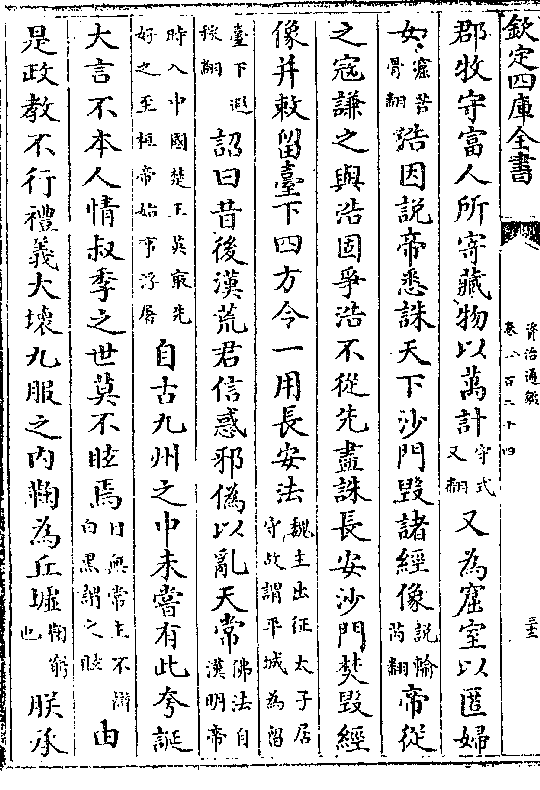 欽定四庫全書
資治通鑑
卷一百二十四
郡牧守富人所寄藏物以萬計守式又翻又為窟室以匿婦
女窟苦骨翻浩因說帝悉誅天下沙門毀諸經像說輸芮翻帝從
之寇謙之與浩固爭浩不從先盡誅長安沙門焚毀經
像并敕留臺下四方令一用長安法魏主出征太子居守故謂平城為留
臺下遐稼翻詔曰昔後漢荒君信惑邪偽以亂天常佛法自漢明帝
時入中國楚王英最先好之至桓帝始事浮屠自古九州之中未嘗有此夸誕
大言不本人情叔季之世莫不眩焉目無常主不辨白黑謂之眩由
是政教不行禮義大壞九服之内鞠為丘墟鞠窮也朕承